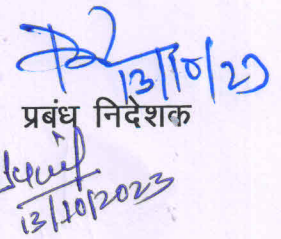 13/10/23
प्रबंध निदेशक
13/10/2023